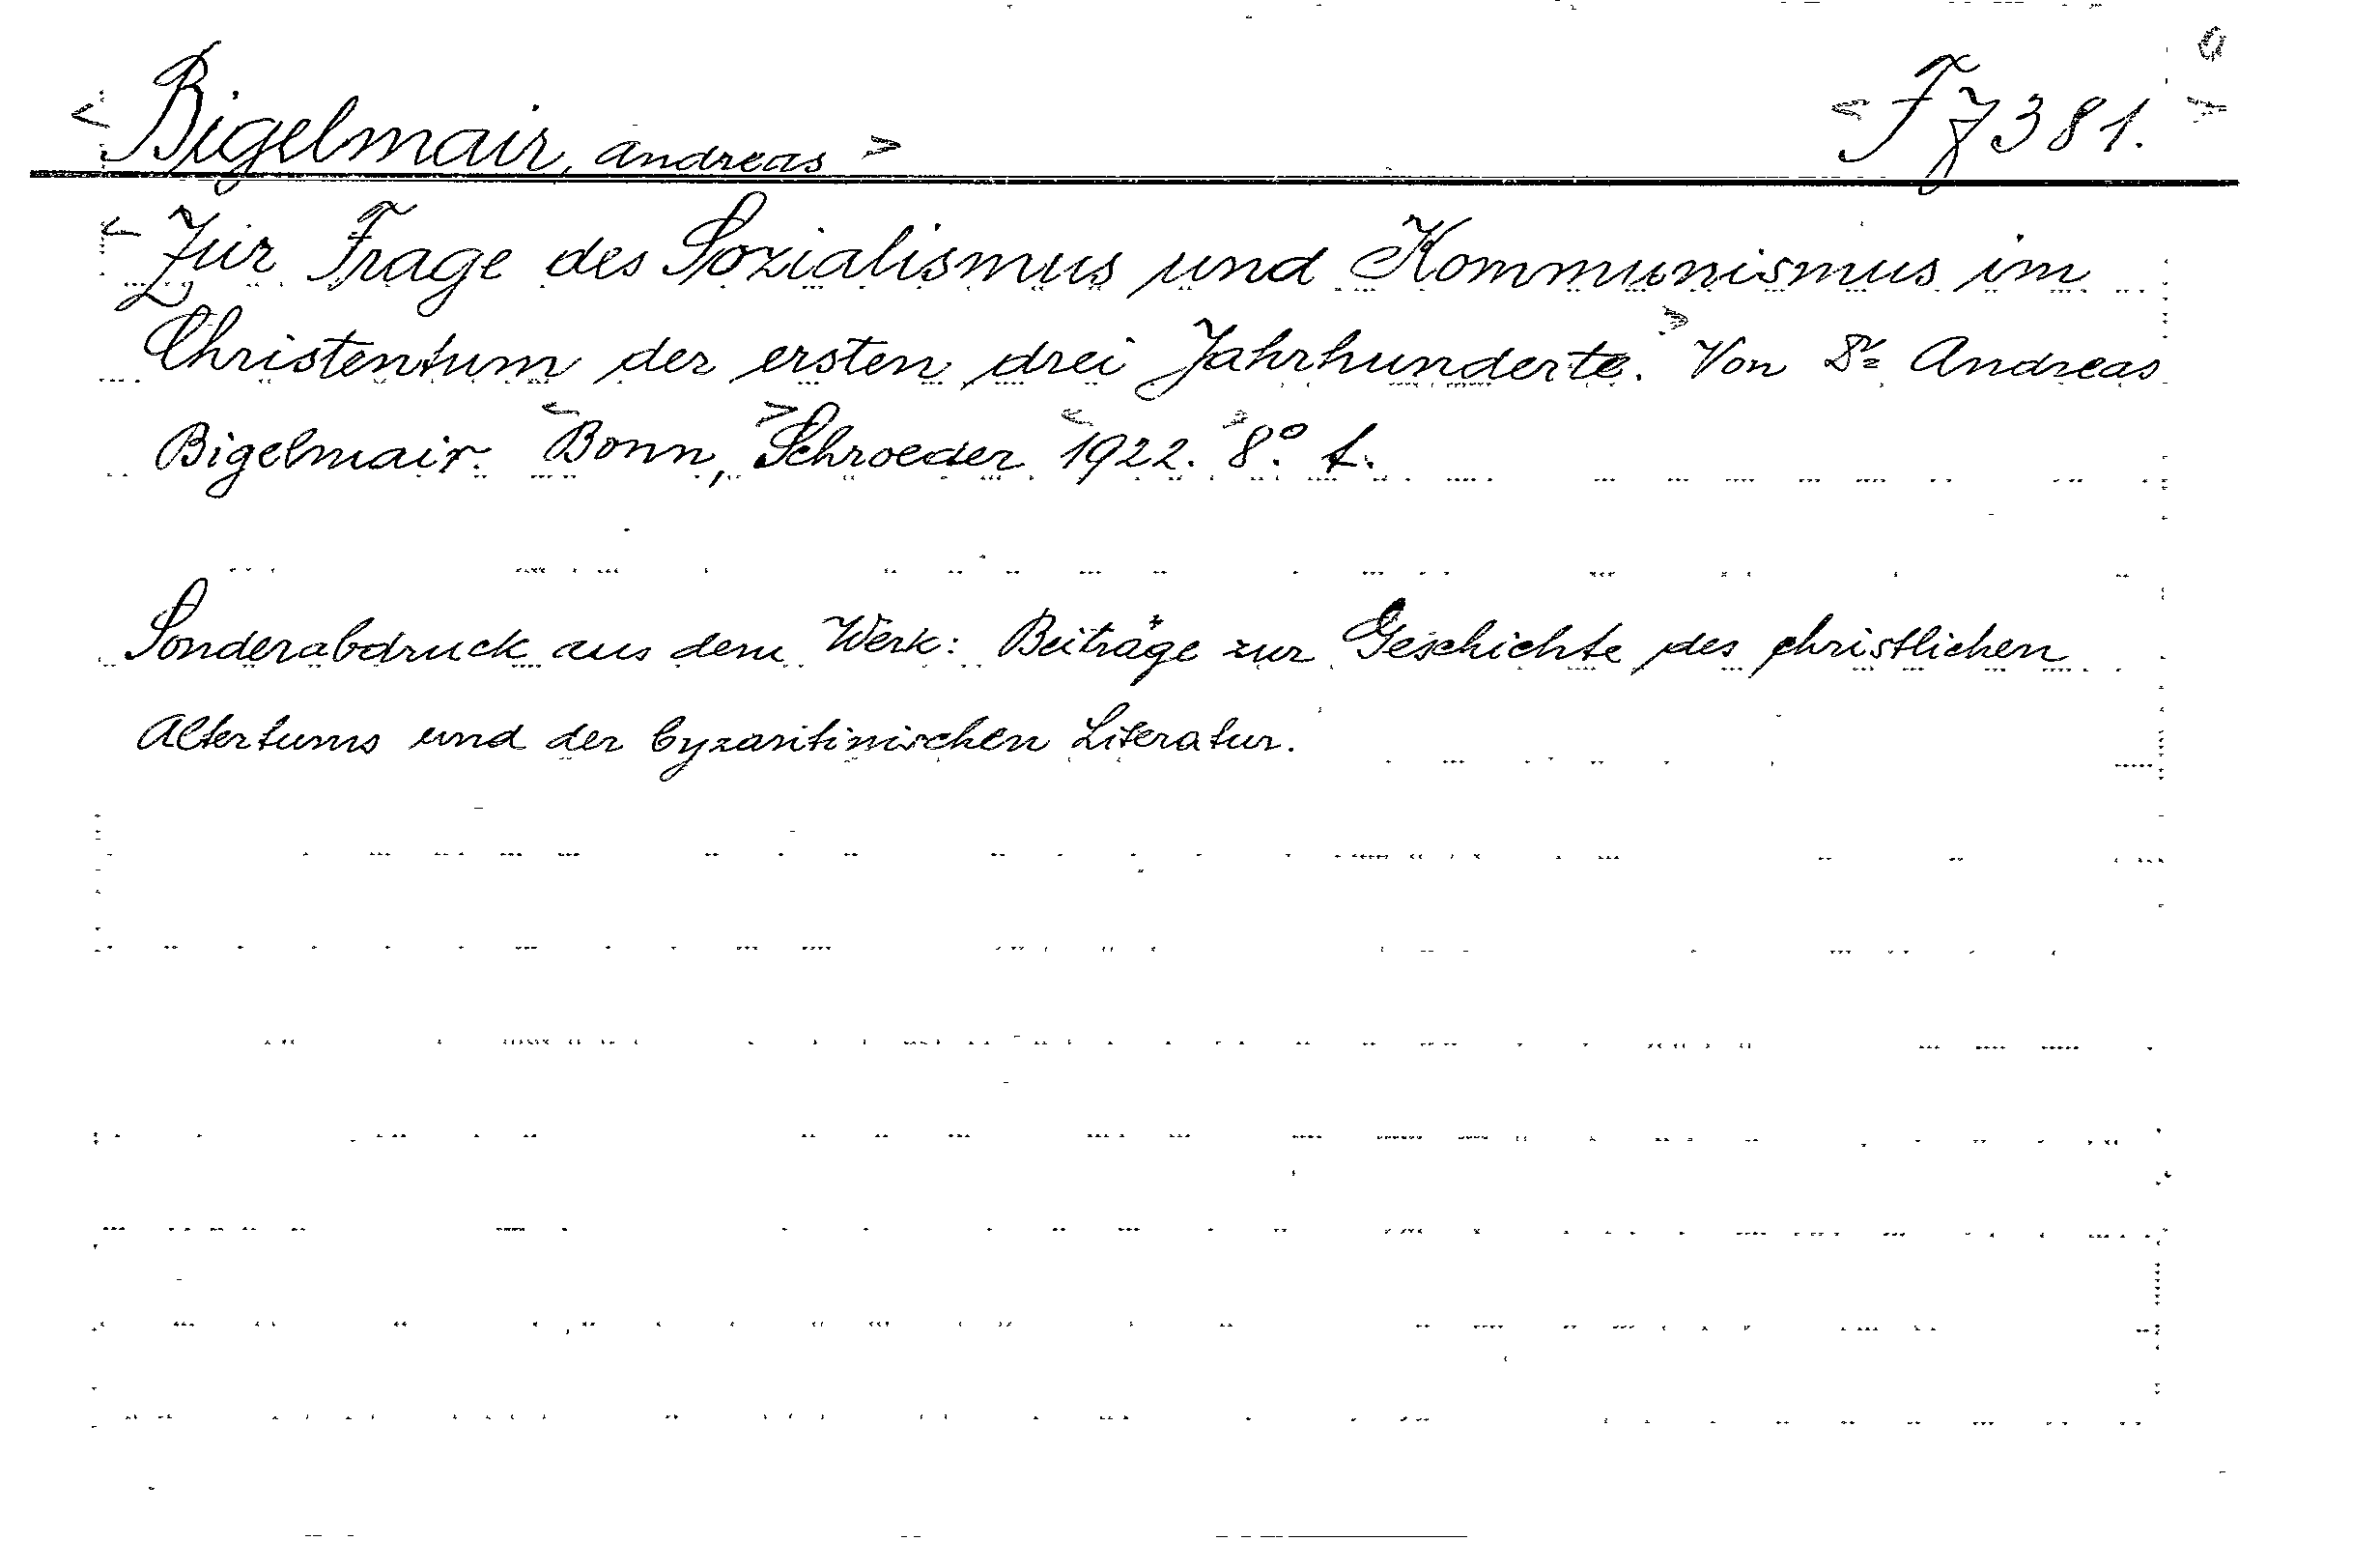 < Bigelmair, Andreas > < F 7381. >
< Zur Frage des Sozialismus und Kommunismus im
Christentum der ersten drei Jahrhunderte. > Von Dr. Andreas
Bigelmair. < Bonn, > Schroeder < 1922. > 8.° f.
Sonderabdruck aus dem Werk: Beiträge zur Geschichte des christlichen
Altertums und der byzantinischen Literatur.